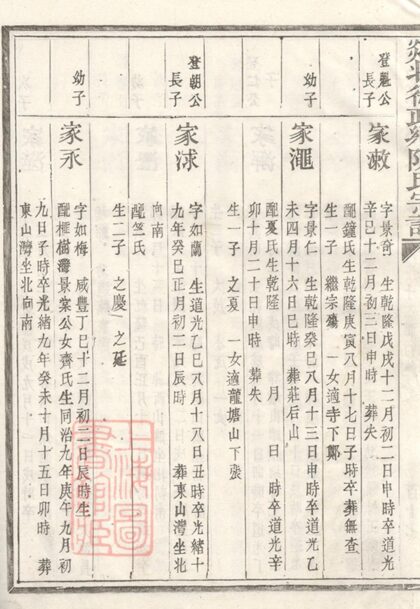 登魁公
長子
家漖
字景奇 生乾隆戊戌十二月初二日申時卒道光
辛巳十二月初三日申時 葬失
配鐘氏生乾隆庚寅八月十七日子時卒葬無查
生一子 繼宗殤 一女適寺下鄭
幼子
家澠
字景仁 生乾隆癸巳八月十三日申時卒道光乙
未四月十六日巳時 葬莊后山
配夏氏生乾隆 月 日 時卒道光辛
卯十月二十日申時 葬失
生一子 之夏 一女適龍塘山下張
登朝公
長子
家浗
字如蘭 生道光乙巳八月十八日丑時卒光緒十
九年癸巳正月初二日辰時 葬東山灣坐北
向南
配竺氏
生二子 之慶 之延
幼子
家永
字如梅 咸豐丁巳十二月初二日辰時生
配榧樹灣景棠公女齊氏生同治九年庚午九月初
九日子時卒光緒九年癸未十月十五日卯時 葬
東山灣坐北向南